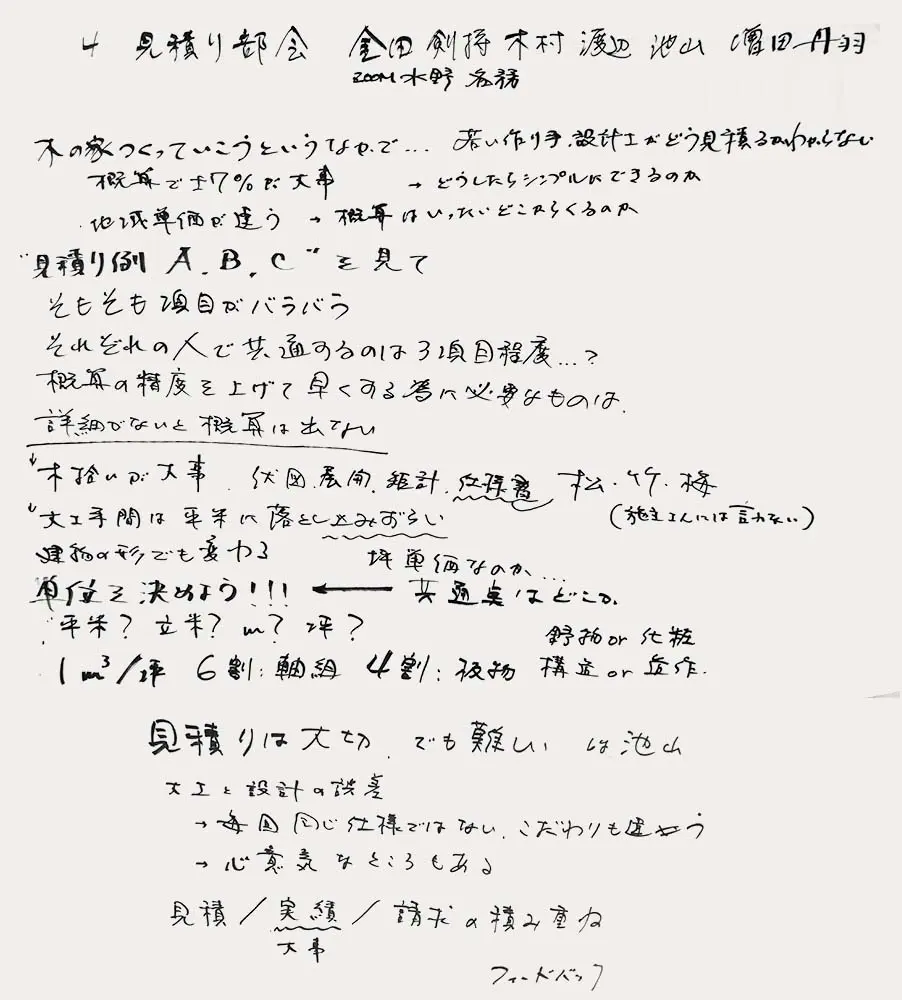 4 見積り部会 金田 剣持 木村 渡辺 池山 増田 丹羽
ZOOM 水野 各務
木の家つくっていこうというなかで… 若い作り手、設計士がどう見積るかわからない
概算で±7%が大事 → どうしたらシンプルにできるのか
・地域単価が違う → 概算はいったいどこからくるのか
"見積り例 A. B. C" を見て
そもそも項目がバラバラ
それぞれの人で共通するのは3項目程度…?
概算の精度を上げて早くする為に必要なものは、
詳細でないと概算は出せない
↓木拾いが大事 伏図.展開.矩計.仕様書 松・竹・梅
↓大工手間は平米に落とし込みずらい (施主さんには言わない)
建物の形でも変わる 坪単価なのか…
単位を決めよう!!! ← 共通点はどこか、
平米? 立米? m? 坪? 野物 or 化粧
1m³/坪 6割:軸組 4割:板物 構造 or 造作.
見積りは大切、でも難しい は池山
大工と設計の誤差
→ 毎回同じ仕様ではない、こだわりも違う
→ 心意気なところもある
見積/実績/請求の積み重ね
大事
フィードバック